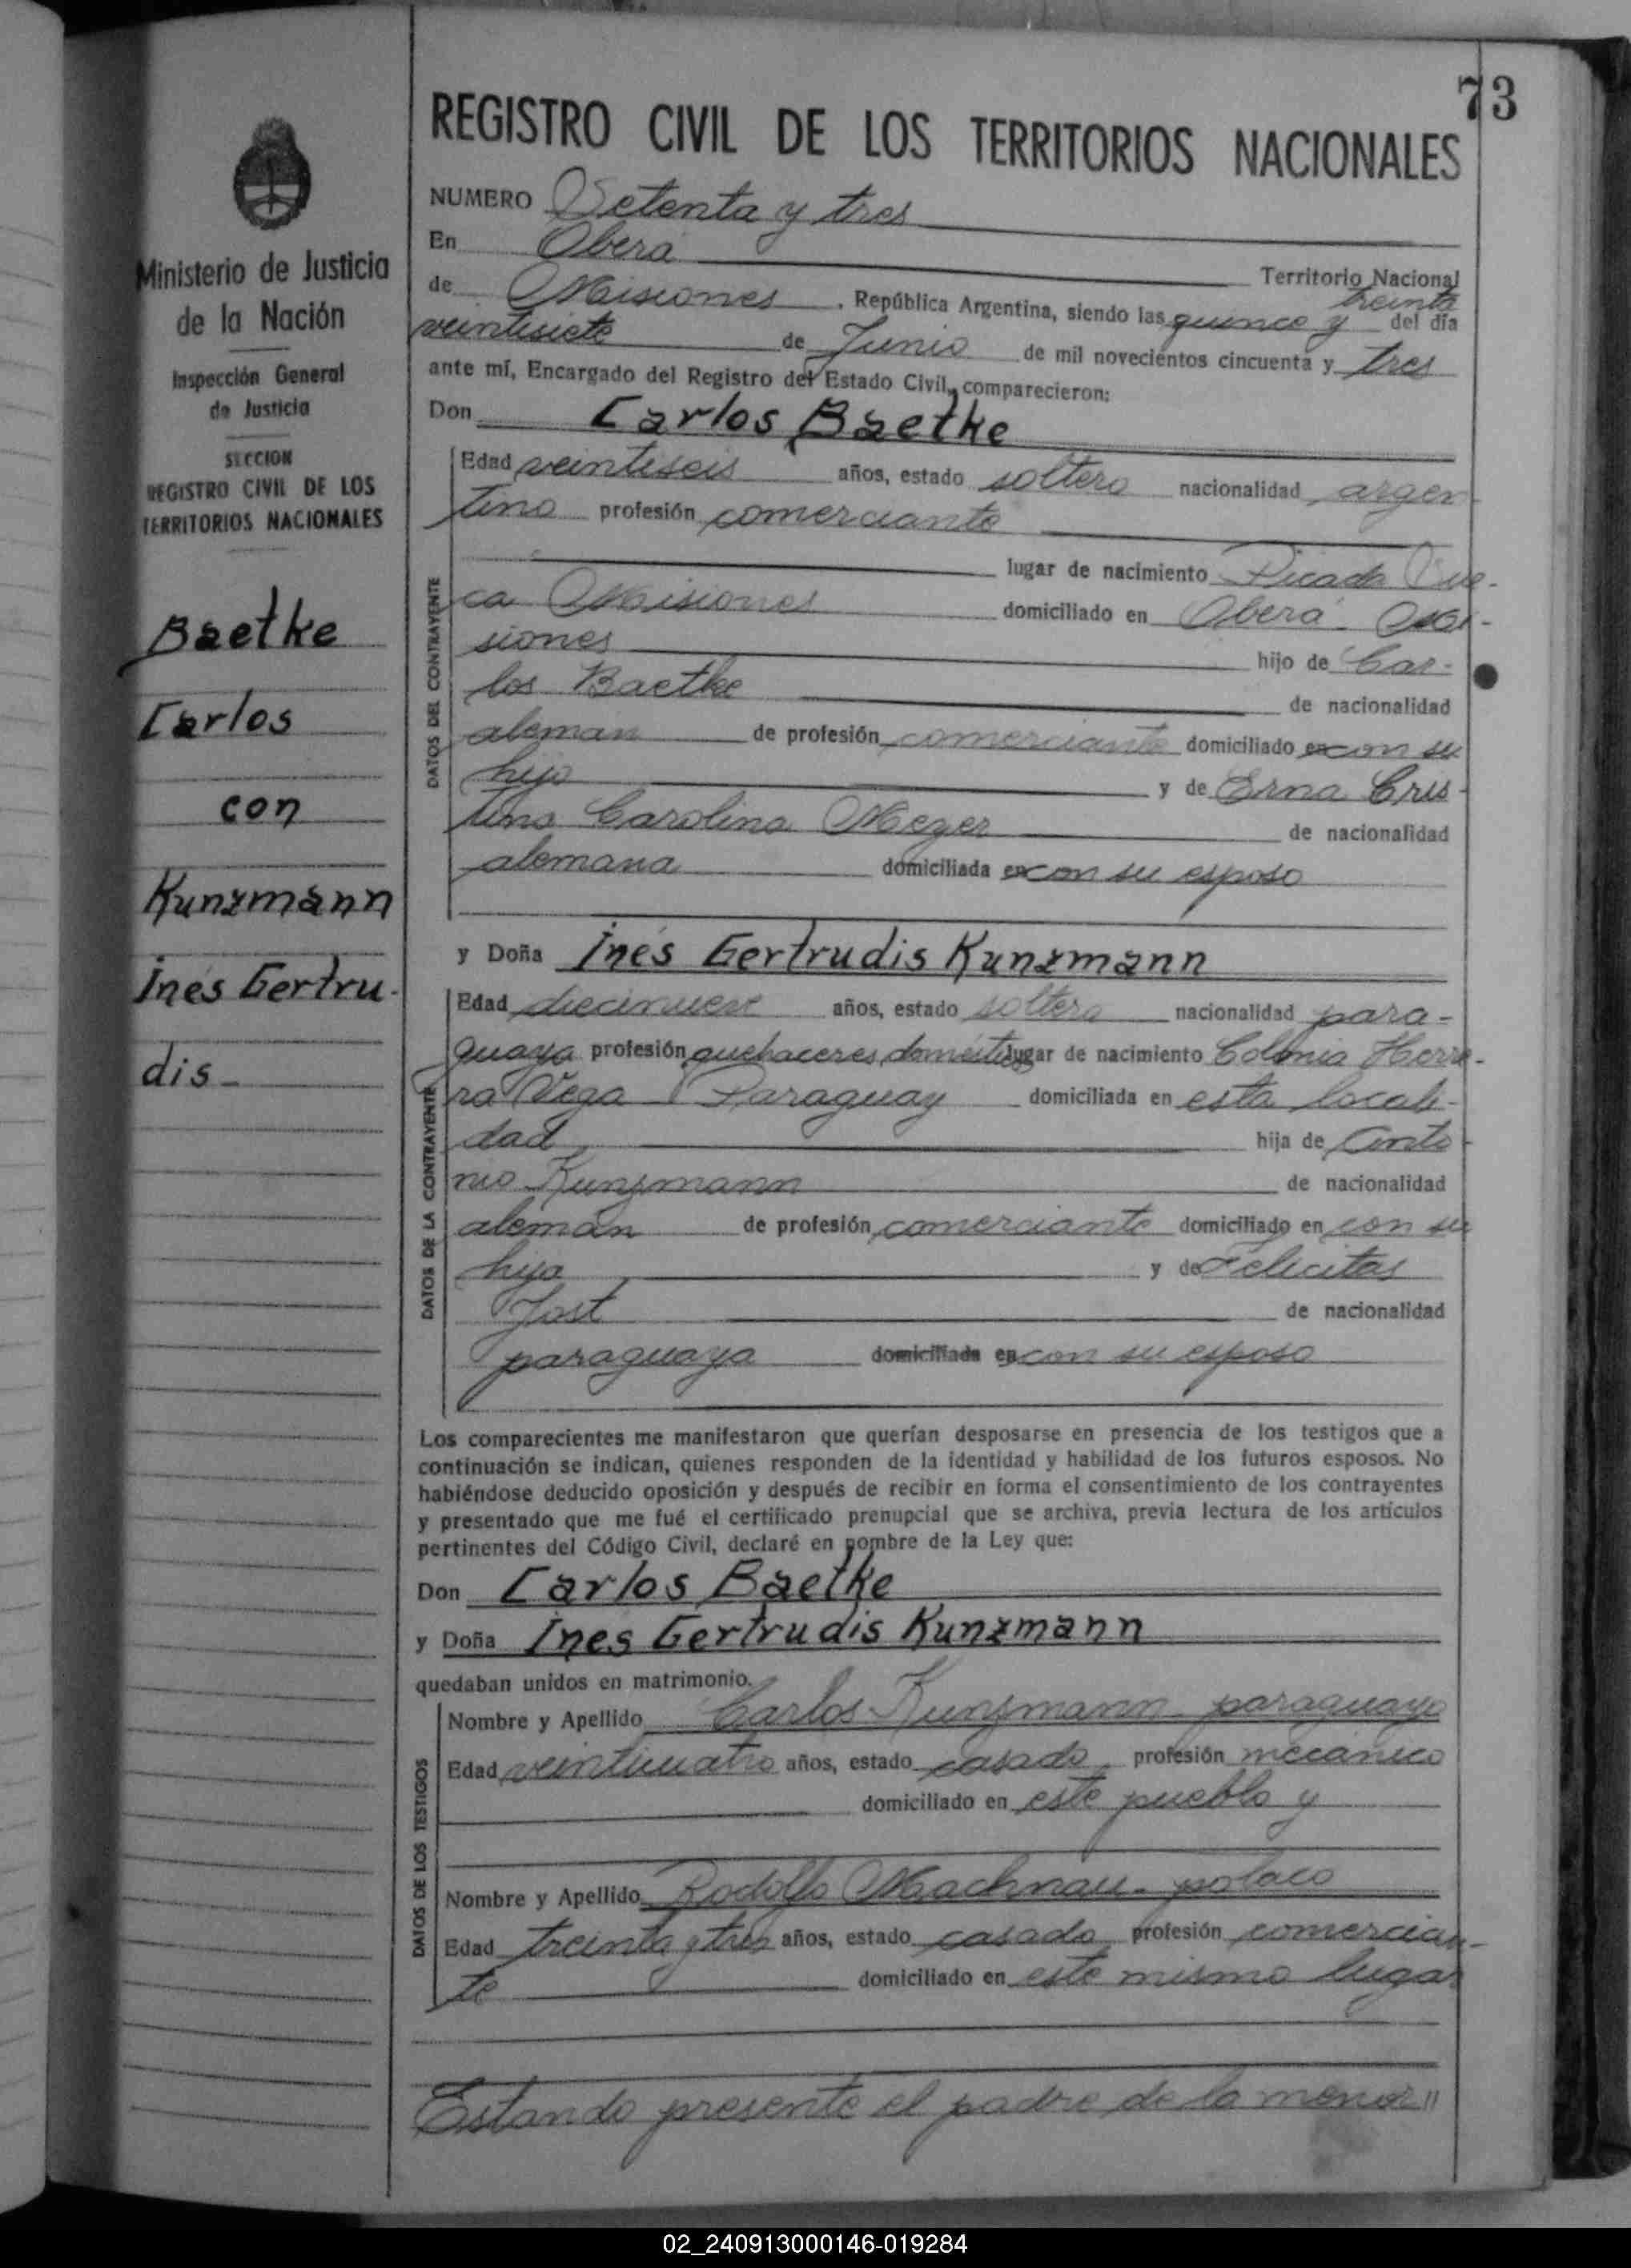 73
REGISTRO CIVIL DE LOS TERRITORIOS NACIONALES
Ministerio de Justicia
de la Nación
Inspección General
de Justicia
SECCION
REGISTRO CIVIL DE LOS
TERRITORIOS NACIONALES
Baetke
Carlos
con
Kunzmann
Inés Gertru-
dis-
NUMERO Setenta y tres
En Oberá Territorio Nacional
de Misiones . República Argentina, siendo las quince y treinta del día
veintisiete de Junio de mil novecientos cincuenta y tres
ante mí, Encargado del Registro del Estado Civil, comparecieron:
Don Carlos Baetke
DATOS DEL CONTRAYENTE
Edad veintiseis años, estado soltero nacionalidad argen-
tino profesión comerciante
lugar de nacimiento Picada Sue-
ca Misiones domiciliado en Oberá - Mi-
siones hijo de Car-
los Baetke de nacionalidad
aleman de profesión comerciante domiciliado en con su
hijo y de Erna Cris-
tina Carolina Meyer de nacionalidad
alemana domiciliada en con su esposo
y Doña Inés Gertrudis Kunzmann
DATOS DE LA CONTRAYENTE
Edad diecinueve años, estado soltera nacionalidad para-
guaya profesión quehaceres domésticos lugar de nacimiento Colonia Herre-
ra Vega Paraguay domiciliada en esta locali-
dad hija de Anto-
nio Kunzmann de nacionalidad
alemán de profesión comerciante domiciliado en con su
hija y de Felicitas
Jost de nacionalidad
paraguaya domiciliada en con su esposo
Los comparecientes me manifestaron que querían desposarse en presencia de los testigos que a
continuación se indican, quienes responden de la identidad y habilidad de los futuros esposos. No
habiéndose deducido oposición y después de recibir en forma el consentimiento de los contrayentes
y presentado que me fué el certificado prenupcial que se archiva, previa lectura de los artículos
pertinentes del Código Civil, declaré en nombre de la Ley que:
Don Carlos Baetke
y Doña Ines Gertrudis Kunzmann
quedaban unidos en matrimonio.
DATOS DE LOS TESTIGOS
Nombre y Apellido Carlos Kunzmann - paraguayo
Edad veinticuatro años, estado casado profesión mecanico
domiciliado en este pueblo y
Nombre y Apellido Rodolfo Machnau - polaco
Edad treinta y tres años, estado casado profesión comercian-
te domiciliado en este mismo lugar
Estando presente el padre de la menor //
02_240913000146-019284